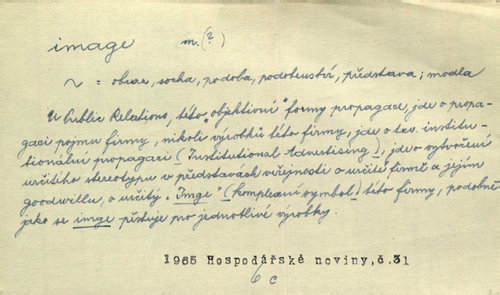 image m. (?)
~ = obraz, socha, podoba, podobenství, představa; modla
U Public Relations, této "objektivní" formy propagace, jde o propa-
gaci pojmu firmy, nikoli výrobků této firmy, jde o tzv. institu-
tionální propagaci (Institutional Advertising), jde o vytvoření
určitého stereotypu v představách veřejnosti o určité firmě a jejím
goodwillu, o určitý "Imge" (komplexní symbol) této firmy, podobně
jako se imge pěstuje pro jednotlivé výrobky.
1965 Hospodářské noviny, č.31
6c